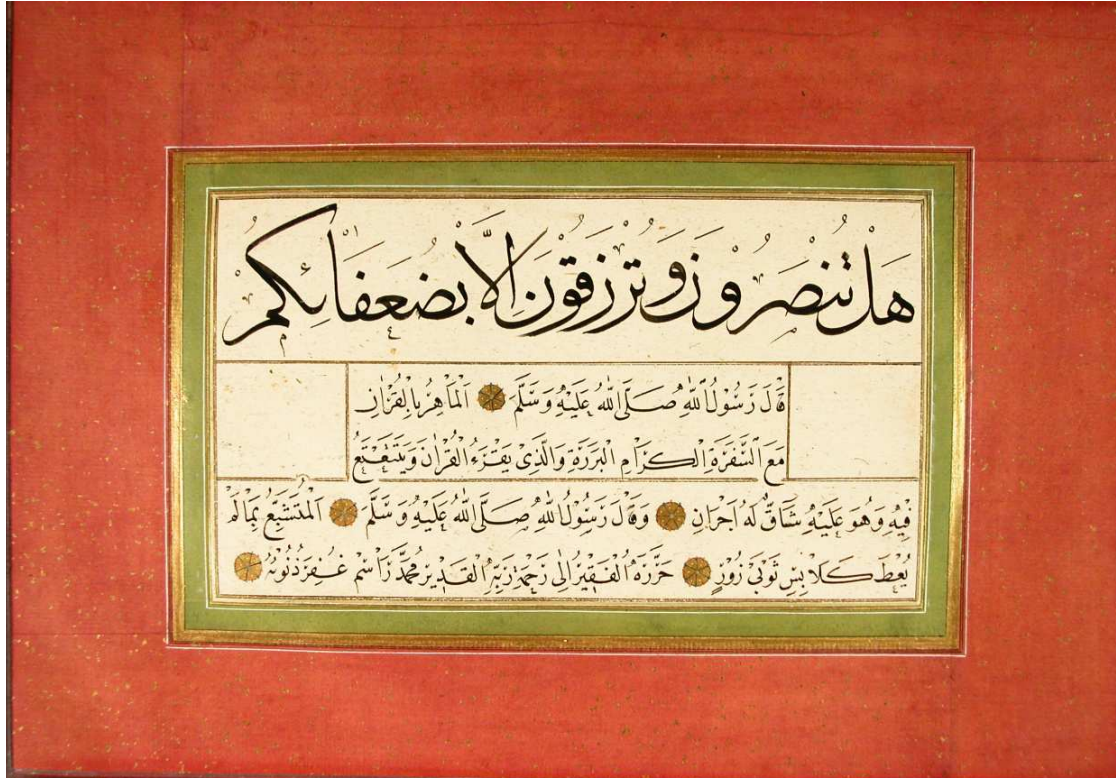 هَلْ تُنْصَرُونَ وَتُرْزَقُونَ اِلَّا بِضُعَفَائِكُمْ
قَالَ رَسُولُ اللّٰهِ صَلَّى اللّٰهُ عَلَيْهِ وَسَلَّمَ اَلْمَاهِرُ بِالْقُرْاٰنِ
مَعَ السَّفَرَةِ الْكِرَامِ الْبَرَرَةِ وَالَّذِى يَقْرَءُ الْقُرْاٰنَ وَيَتَتَعْتَعُ
فِيهِ وَهُوَ عَلَيْهِ شَاقٌّ لَهُ اَجْرَانِ وَقَالَ رَسُولُ اللّٰهِ صَلَّى اللّٰهُ عَلَيْهِ وَسَلَّمَ اَلْمُتَشَبِّعُ بِمَا لَمْ
يُعْطَ كَلَابِسِ ثَوْبَىْ زُورٍ حَرَّرَهُ الْفَقِيرُ اِلٰى رَحْمَةِ رَبِّهِ الْقَدِيرِ مُحَمَّد رَاسِم غُفِرَ ذُنُوبُهُ